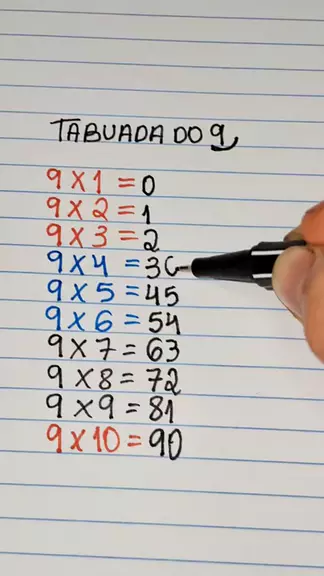 TABUADA DO 9
9 X 1 = 0
9 X 2 = 1
9 X 3 = 2
9 X 4 = 36
9 X 5 = 45
9 X 6 = 54
9 X 7 = 63
9 X 8 = 72
9 X 9 = 81
9 X 10 = 90